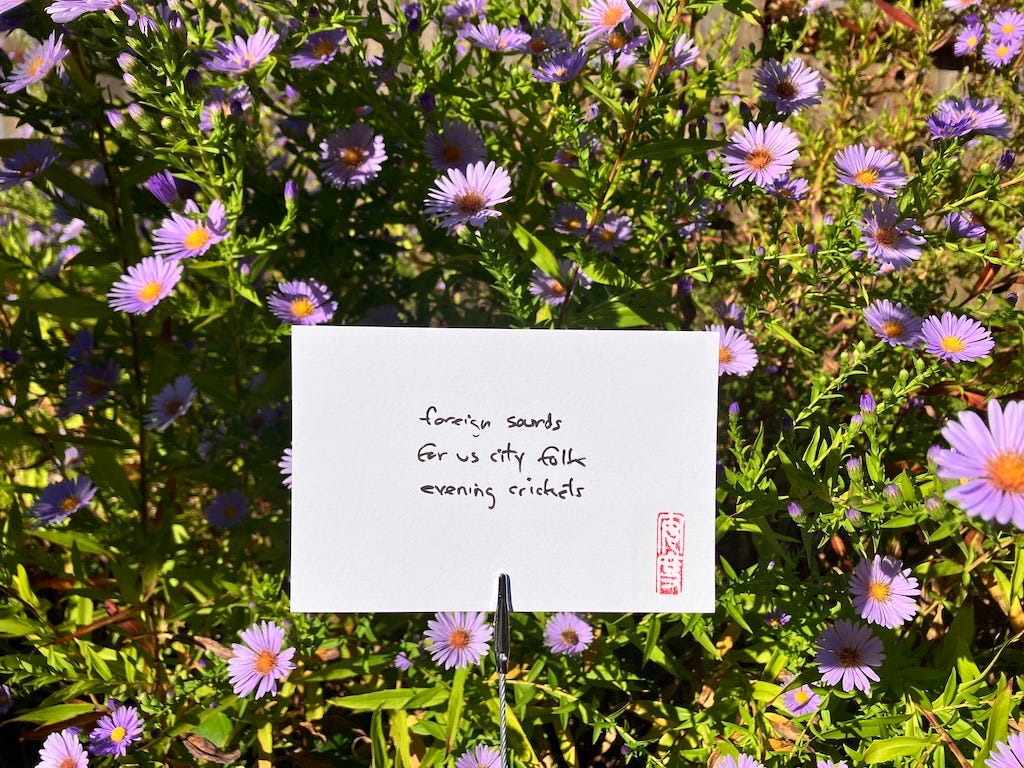 foreign sounds
for us city folk
evening crickets